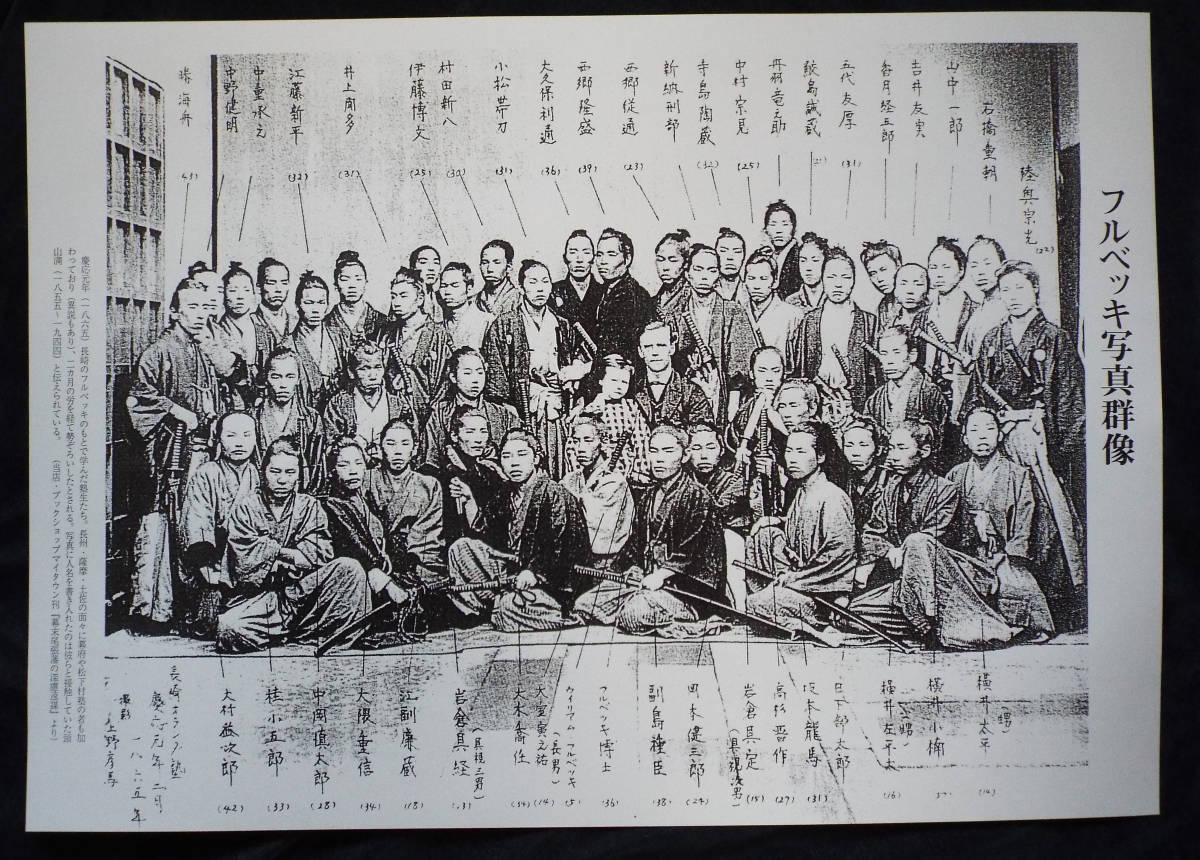 フルベッキ写真群像
陸奥宗光
(22)
石橋重朝
山中一郎
吉井友実
香月経五郎
五代友厚
(31)
鮫島誠蔵
(21)
丹羽竜之助
中村宗見
(25)
寺島陶蔵
(32)
新納刑部
西郷従通
(23)
西郷隆盛
(39)
大久保利通
(36)
小松帯刀
(31)
村田新八
(30)
伊藤博文
(25)
井上聞多
(31)
江藤新平
(32)
中島永元
中野健明
勝海舟
(43)
横井太平
(甥)
(16)
横井小楠
横井左平太
(甥)
(16)
日下部太郎
坂本龍馬
(31)
高杉晋作
(27)
岩倉具定
(具視次男)
(15)
岡本健三郎
(24)
副島種臣
(38)
フルベッキ博士
(36)
ウイリアム フルベッキ
(長男)
(5)
大室寅之祐
(14)
大木喬任
(34)
岩倉具経
(具視三男)
(13)
江副廉蔵
(18)
大隈重信
(34)
中岡慎太郎
(28)
桂小五郎
(33)
大村益次郎
(42)
長崎オランダ塾
慶応元年二月
一八六五年
撮影 上野彦馬
慶応元年(一八六五)長崎のフルベッキのもとで学んだ塾生たち。長州・薩摩・土佐の面々に幕府や松下村塾の者も加
わっており(異説もあり)、二カ月の労を経て勢ぞろいしたとされる。写真に人名を書き入れたのは彼らと接触していた頭
山満(一八五五~一九四四)と伝えられている。 (当店・ブックショップマイタウン刊『幕末尾張藩の深慮遠謀』より)